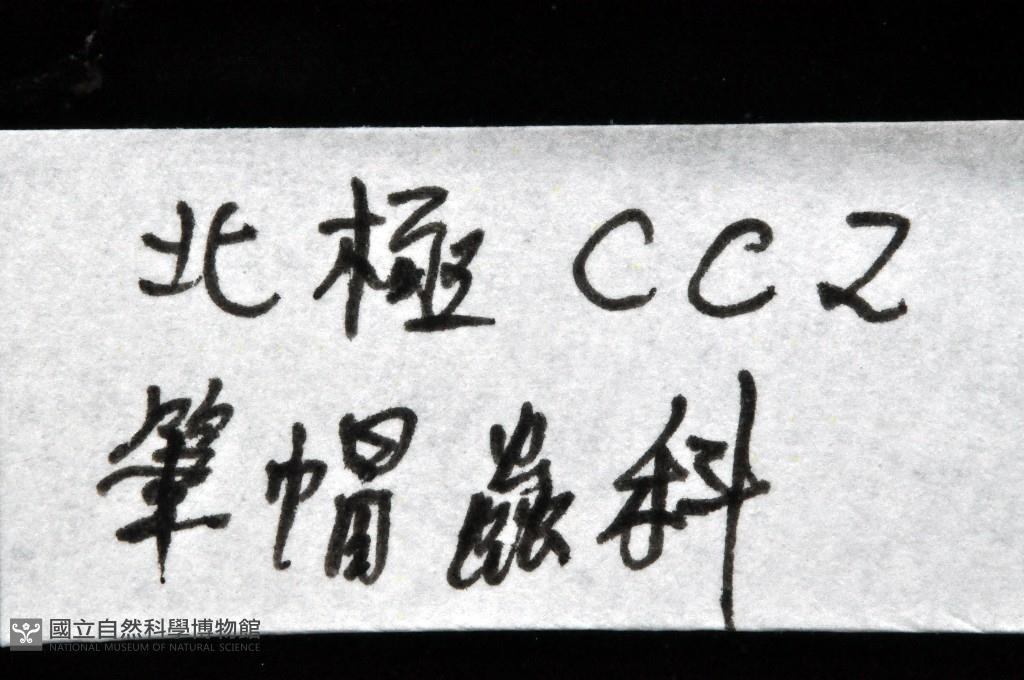 北極 CC2
筆帽蟲科
國立自然科學博物館
NATIONAL MUSEUM OF NATURAL SCIENCE